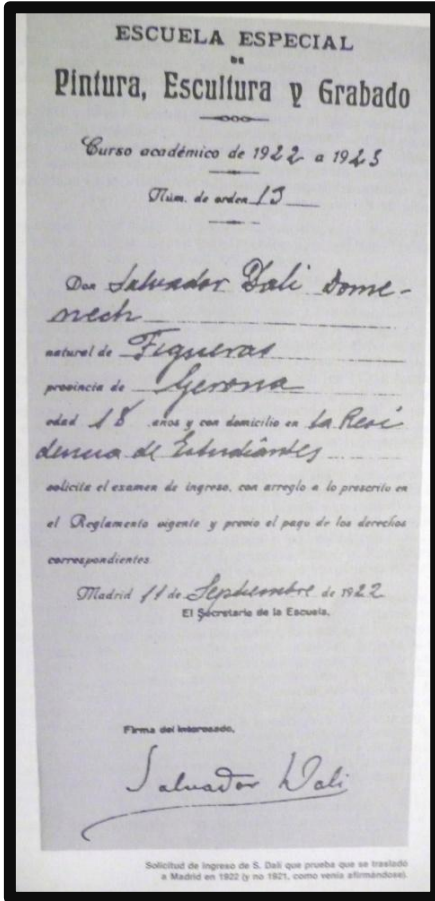 ESCUELA ESPECIAL
DE
Pintura, Escultura y Grabado
Curso académico de 1922 a 1923
Núm. de orden 13
Don Salvador Dali Dome-
nech
natural de Figueras
provincia de Gerona
edad 18 años y con domicilio en La Resi
dencia de Estudiantes
solicita el examen de ingreso, con arreglo a lo prescrito en
el Reglamento vigente y previo el pago de los derechos
correspondientes.
Madrid 11 de Septiembre de 1922
El Secretario de la Escuela,
Firma del interesado,
Salvador Dali
Solicitud de ingreso de S. Dalí que prueba que se trasladó
a Madrid en 1922 (y no 1921, como venía afirmándose).